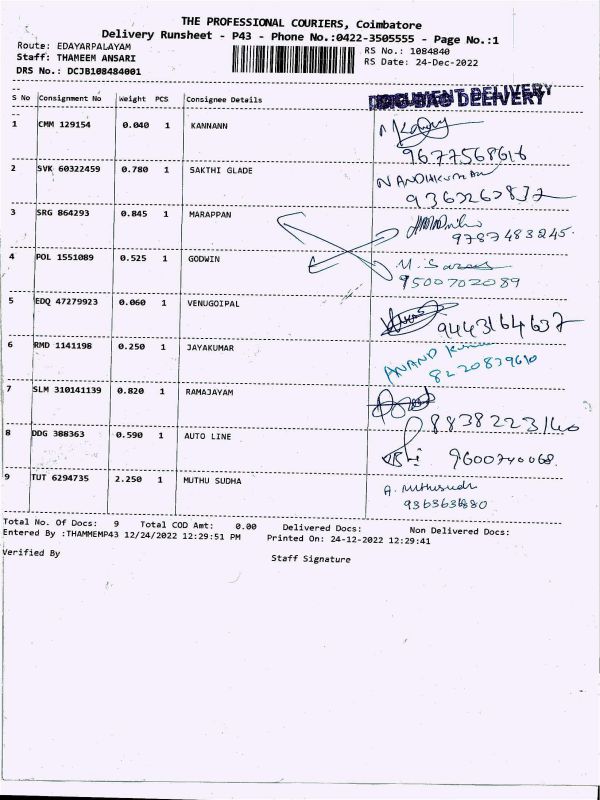 THE PROFESSIONAL COURIERS, Coimbatore
Delivery Runsheet - P43 - Phone No.:0422-3505555 - Page No.:1
Route: EDAYARPALAYAM
RS No.: 1084840
Staff: THAMEEM ANSARI
RS Date: 24-Dec-2022
DRS No.: DCJB108484001
S No Consignment No Weight PCS Consignee Details
DELIVERY
1 CMM 129154 0.040 1 KANNANN
9677568616
2 SVK 60322459 0.780 1 SAKTHI GLADE NANDHKUMAR
9363262837
3 SRG 864293 0.845 1 MARAPPAN
9787483245.
4 POL 1551089 0.525 1 GODWIN
9500702089
5 EDQ 47279923 0.060 1 VENUGOIPAL
9443164637
6 RMD 1141198 0.250 1 JAYAKUMAR ANAND Kumar
8220839610
7 SLM 310141139 0.820 1 RAMAJAYAM
8838223140
8 DDG 388363 0.590 1 AUTO LINE
9600740068.
9 TUT 6294735 2.250 1 MUTHU SUDHA A. Muthusudh
9363631880
Total No. Of Docs: 9 Total COD Amt: 0.00 Delivered Docs: Non Delivered Docs:
Entered By :THAMMEMP43 12/24/2022 12:29:51 PM Printed On: 24-12-2022 12:29:41
Verified By Staff Signature